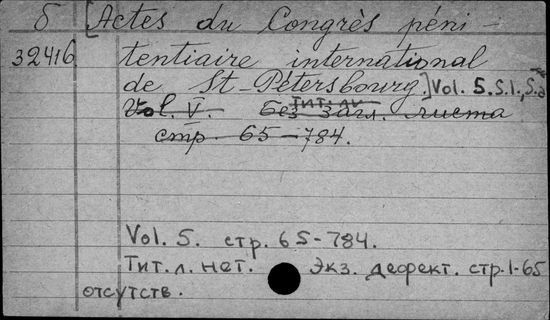 б [Actes du Congrès péni-
32416 tentiaire international
de St-Pétersbourg] Vol. 5. S.l., S.a
Vol. V. Без тит. загл. листа
стр. 65-784.
Vol. 5. стр. 65-784.
Тит. л. нет. Экз. дефект. стр. 1-65
отсутств.